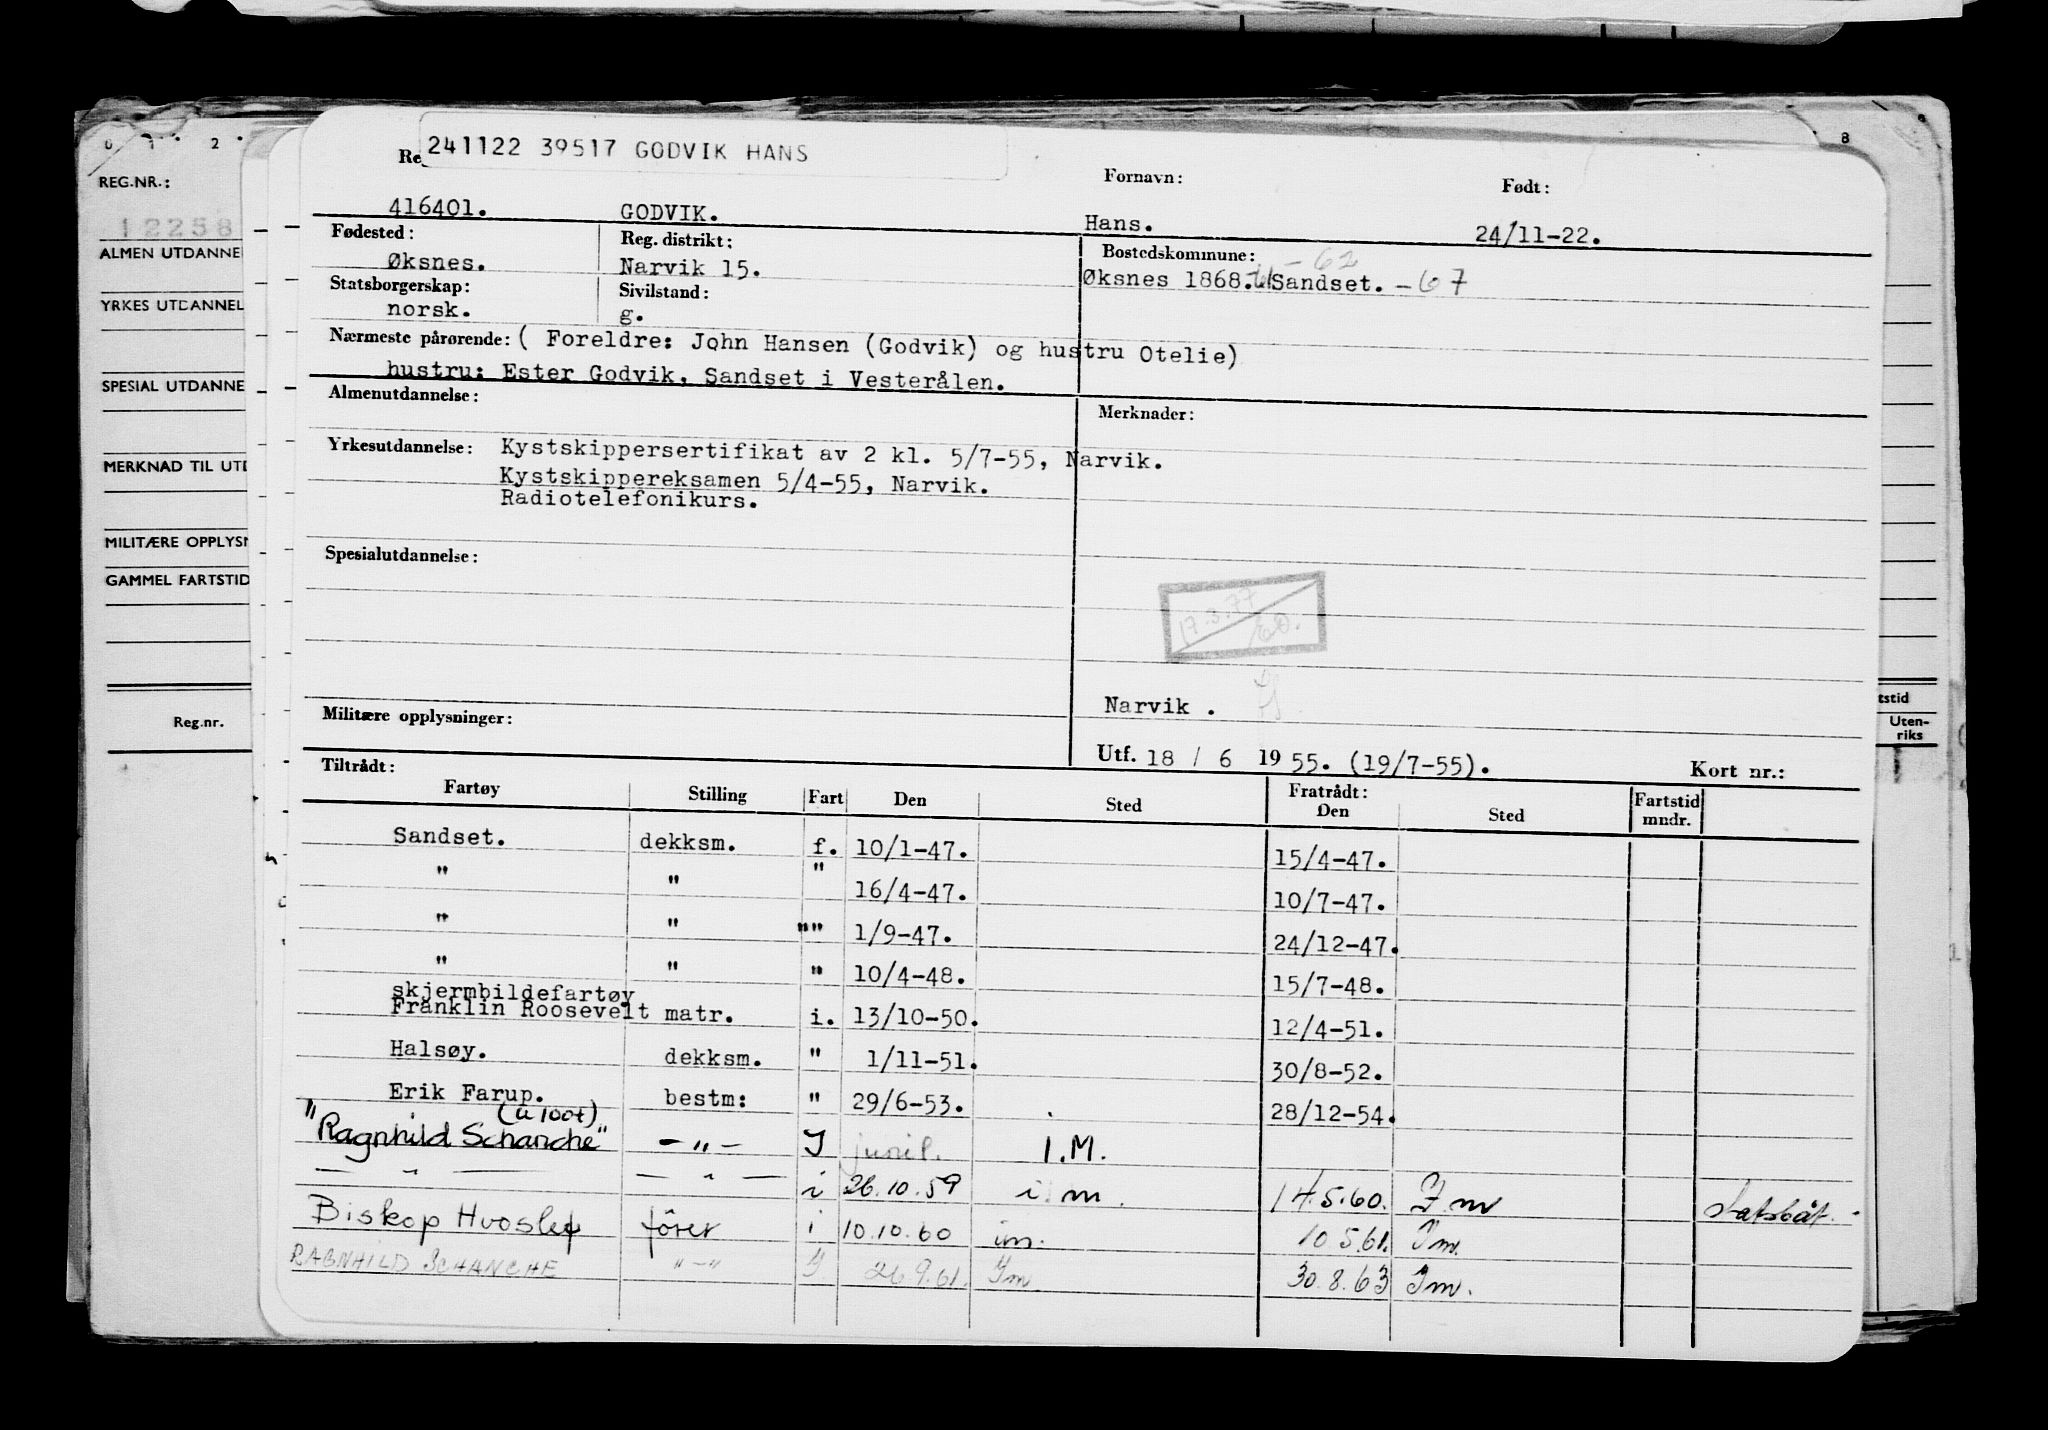 241122 39517 GODVIK HANS
0 1 2 8
REG.NR.: Fornavn: Født:
12258 416401. GODVIK. Hans. 24/11-22.
ALMEN UTDANNE Fødested: Reg. distrikt: Bostedskommune: - 62
Øksnes. Narvik 15. Øksnes 1868. 61 Sandset. - 67
YRKES UTDANNEL Statsborgerskap: Sivilstand:
norsk. g.
Nærmeste pårørende: ( Foreldre: John Hansen (Godvik) og hustru Otelie)
SPESIAL UTDANNE hustru: Ester Godvik, Sandset i Vesterålen.
Almenutdannelse: Merknader:
MERKNAD TIL UTD Yrkesutdannelse: Kystskippersertifikat av 2 kl. 5/7-55, Narvik.
Kystskippereksamen 5/4-55, Narvik.
Radiotelefonikurs.
MILITÆRE OPPLYSN Spesialutdannelse:
GAMMEL FARTSTID
17.3.77
Reg.nr. Militære opplysninger: Narvik . tstid
Uten-
riks
Utf. 18 / 6 19 55. (19/7-55). Kort nr.:
Tiltrådt: Fratrådt:
Fartøy Stilling Fart Den Sted Den Sted Fartstid mndr.
Sandset. dekksm. f. 10/1-47. 15/4-47.
" " " 16/4-47. 10/7-47.
" " "" 1/9-47. 24/12-47.
" " " 10/4-48. 15/7-48.
skjermbildefartøy
Franklin Roosevelt matr. i. 13/10-50. 12/4-51.
Halsøy. dekksm. " 1/11-51. 30/8-52.
Erik Farup. bestm: " 29/6-53. 28/12-54.
(u 100t)
"Ragnhild Schanche" - " - I I.M.
— " — — " — i 26.10.59 i m. 14.5.60. I m
Biskop Hvoslef fører i 10.10.60 im. 10 5.61. Im.
RAGNHILD SCHANCHE "-" I 26 9.61. Im 30.8.63 Im.